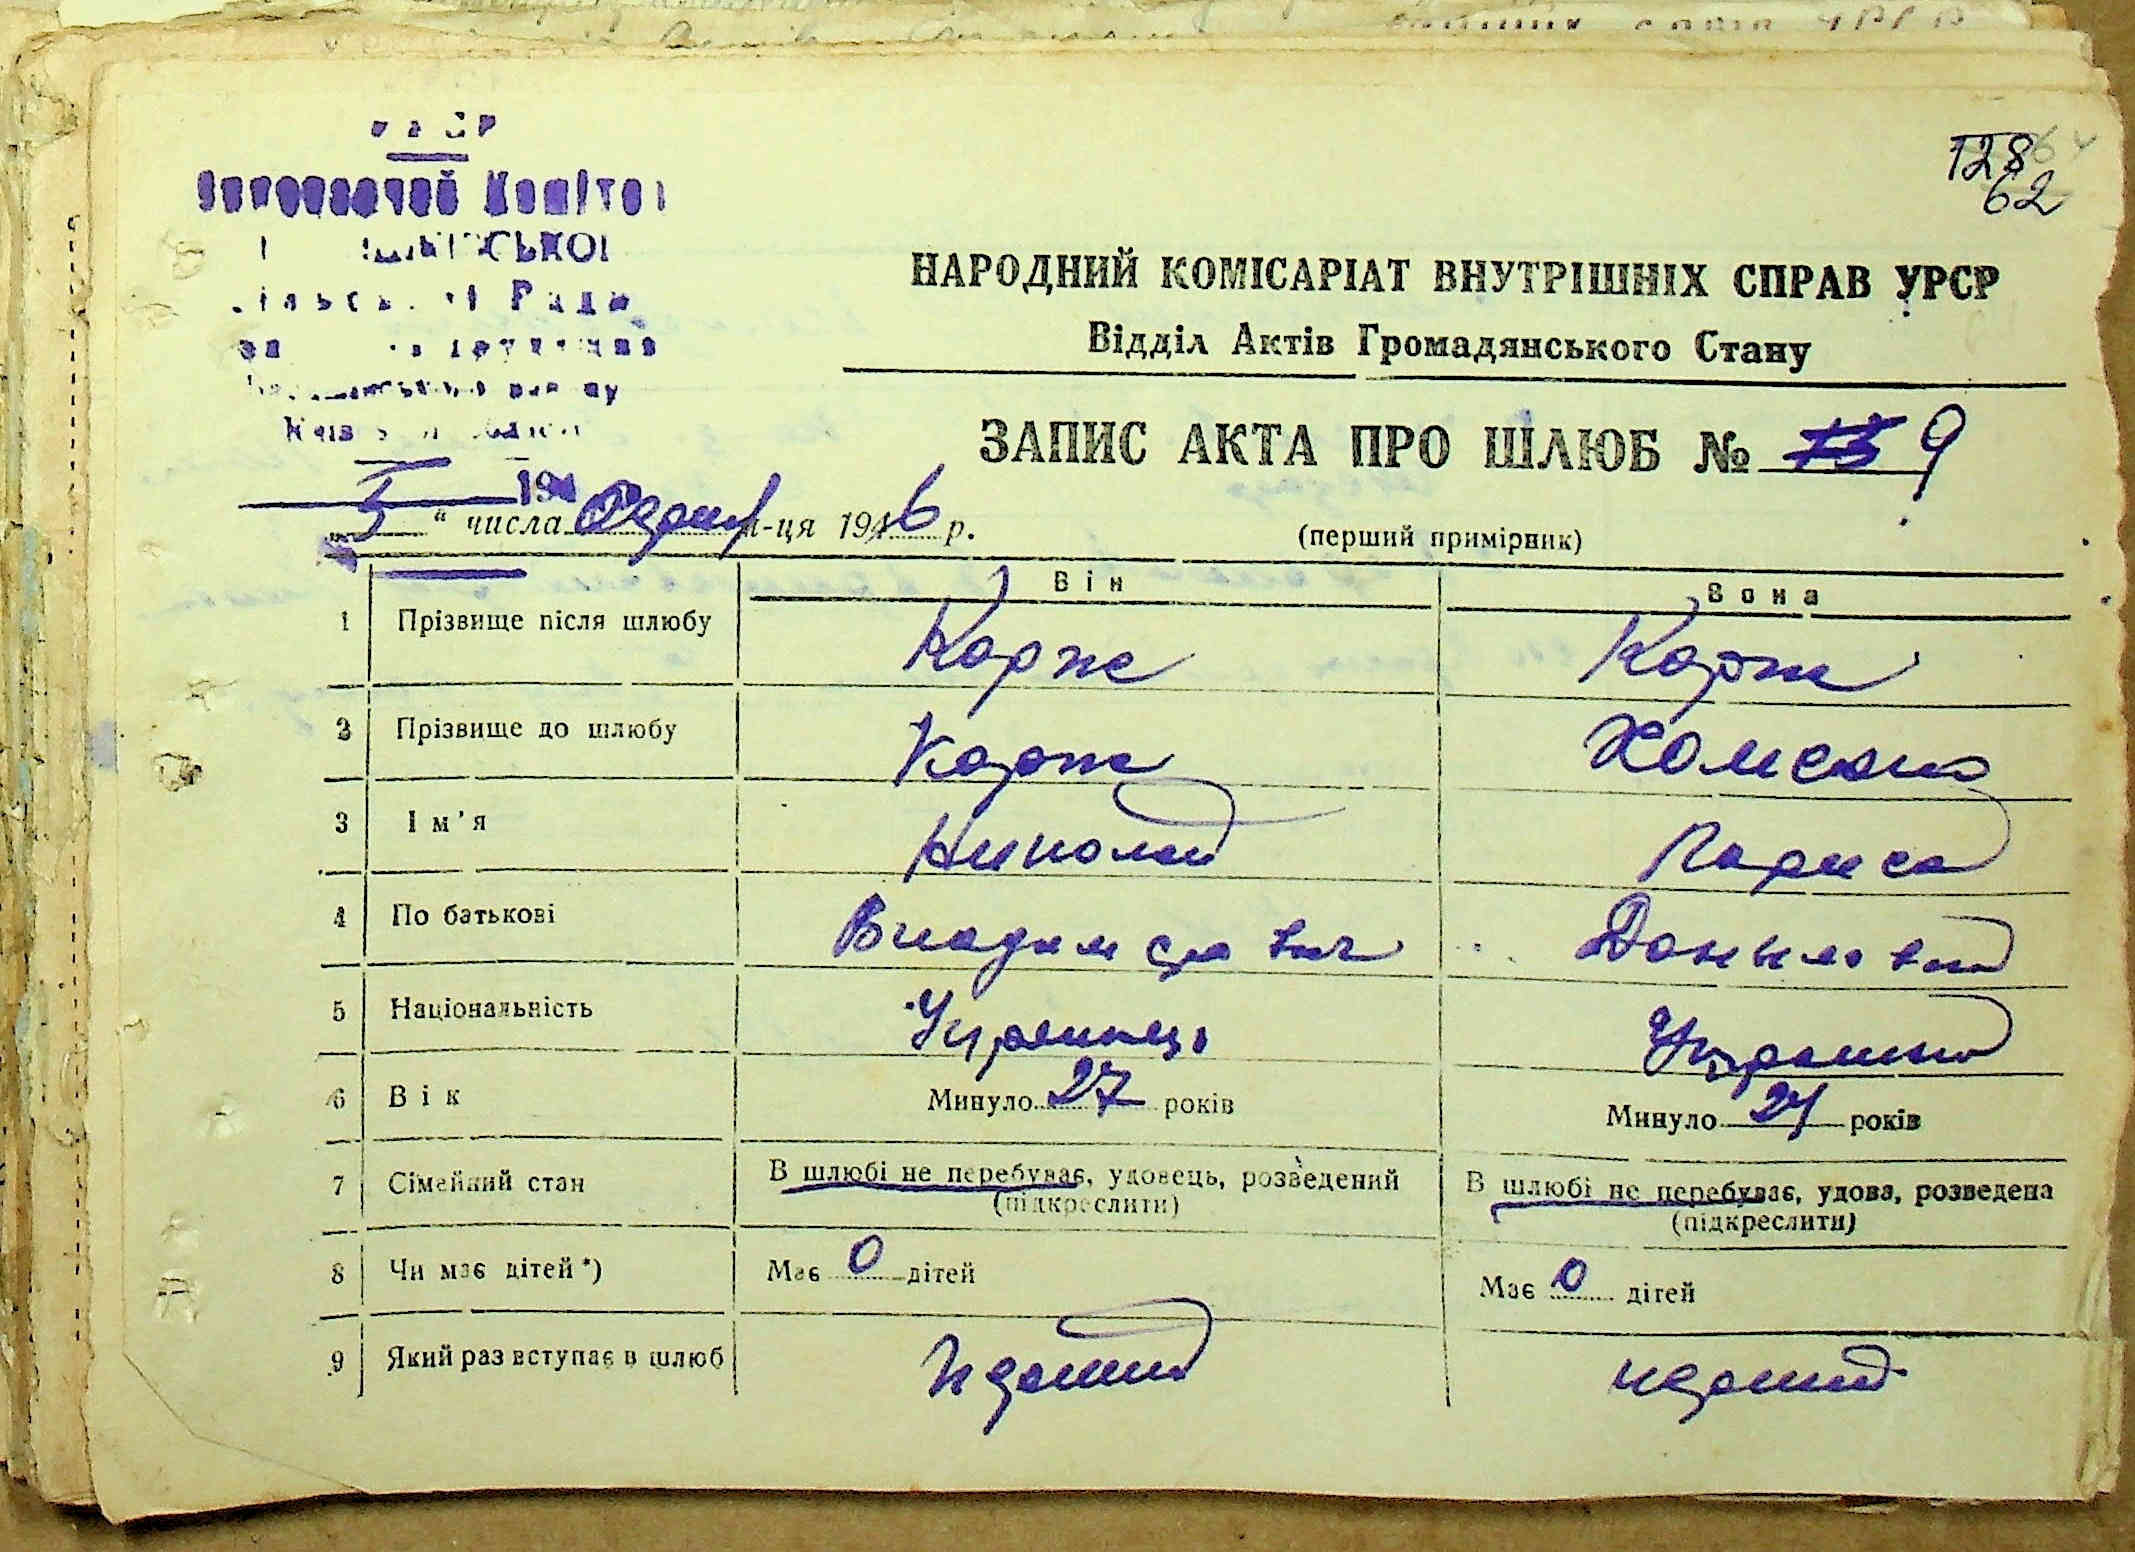 128
62
УРСР
Виконавчий Комітет
СЬКОЇ
Ради
району
НАРОДНИЙ КОМІСАРІАТ ВНУТРІШНІХ СПРАВ УРСР
Відділ Актів Громадянського Стану
ЗАПИС АКТА ПРО ШЛЮБ № 9
194
„5“ числа серпня-ця 1946 р.
(перший примірник)
Він Вона
1 Прізвище після шлюбу Корж Корж
2 Прізвище до шлюбу Корж
3 Ім'я Николай Лариса
4 По батькові Владимирович Даниловна
5 Національність Українець Українка
6 Вік Минуло 27 років Минуло 24 років
7 Сімейний стан В шлюбі не перебуває, удовець, розведений В шлюбі не перебуває, удова, розведена
(підкреслити) (підкреслити)
8 Чи має дітей *) Має 0 дітей Має 0 дітей
9 Який раз вступає в шлюб